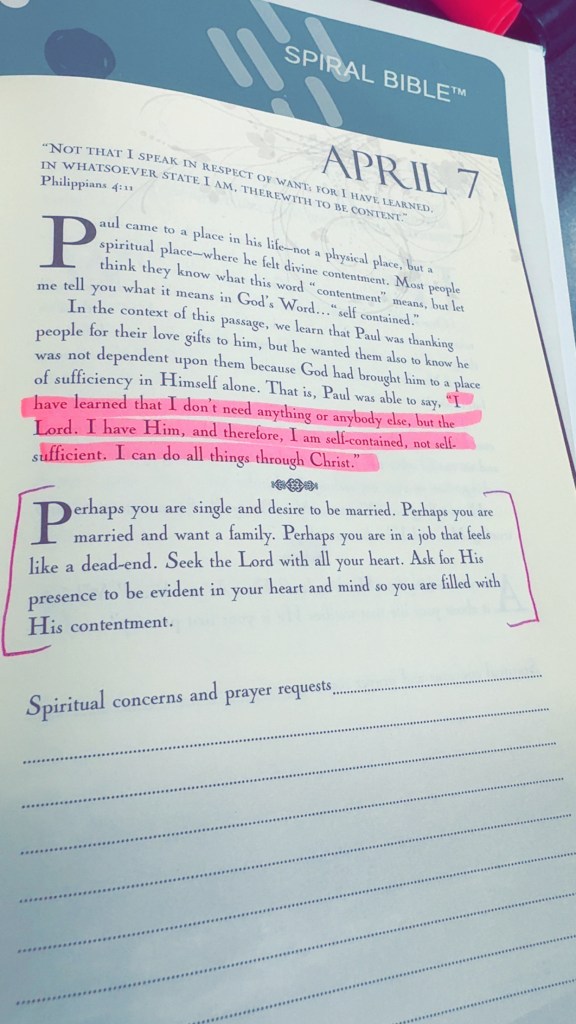 SPIRAL BIBLE™
APRIL 7
"NOT THAT I SPEAK IN RESPECT OF WANT: FOR I HAVE LEARNED,
IN WHATSOEVER STATE I AM, THEREWITH TO BE CONTENT."
Philippians 4:11
Paul came to a place in his life—not a physical place, but a
spiritual place—where he felt divine contentment. Most people
think they know what this word "contentment" means, but let
me tell you what it means in God's Word..."self contained."
In the context of this passage, we learn that Paul was thanking
people for their love gifts to him, but he wanted them also to know he
was not dependent upon them because God had brought him to a place
of sufficiency in Himself alone. That is, Paul was able to say, "I
have learned that I don't need anything or anybody else, but the
Lord. I have Him, and therefore, I am self-contained, not self-
sufficient. I can do all things through Christ."
Perhaps you are single and desire to be married. Perhaps you are
married and want a family. Perhaps you are in a job that feels
like a dead-end. Seek the Lord with all your heart. Ask for His
presence to be evident in your heart and mind so you are filled with
His contentment.
Spiritual concerns and prayer requests